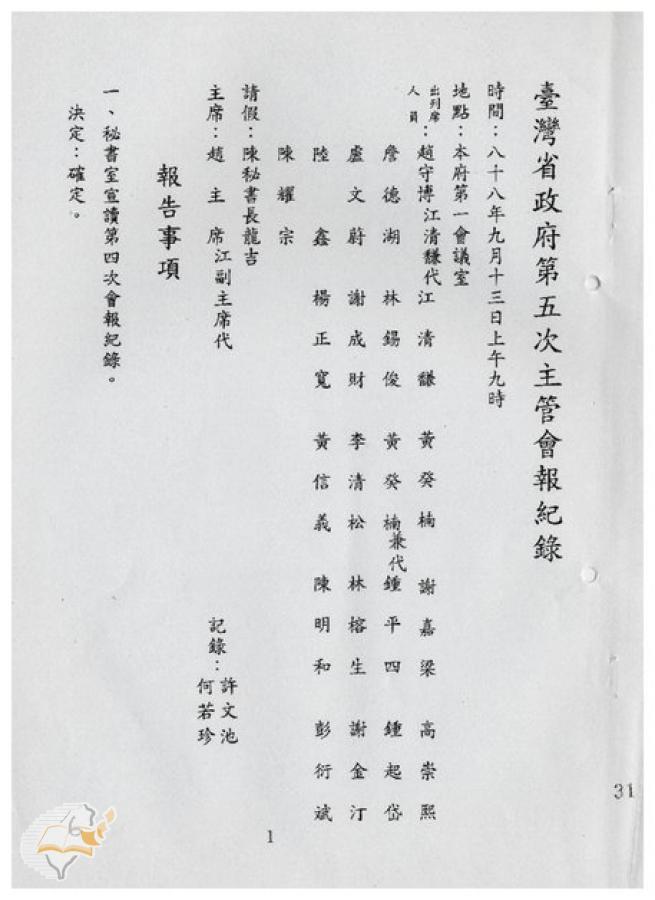 臺灣省政府第五次主管會報紀錄
時間：八十八年九月十三日上午九時
地點：本府第一會議室
出列席人員：趙守博江清馦代 江清馦 黃癸楠 謝嘉梁 高崇熙
詹德湖 林錫俊 黃癸楠兼代 鍾平四 鍾起岱
盧文蔚 謝成財 李清松 林榕生 謝金汀
陸鑫 楊正寬 黃信義 陳明和 彭衍斌
陳耀宗
請假：陳秘書長龍吉
主席：趙主席江副主席代
記錄：許文池
何若珍
報告事項
一、秘書室宣讀第四次會報紀錄。
決定：確定。
1
31